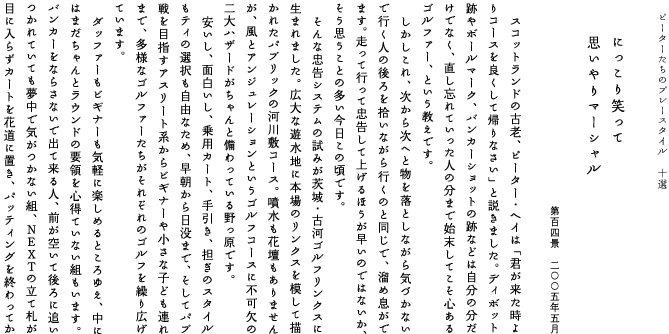 ピーターたちのプレースタイル 十選
にっこり笑って
思いやりマーシャル
第百四景 二〇〇五年五月
スコットランドの古老、ピーター・ヘイは「君が来た時よ
りコースを良くして帰りなさい」と説きました。ディボット
跡やボールマーク、バンカーショットの跡などは自分の分だ
けでなく、直し忘れていった人の分まで始末してこそ心ある
ゴルファー、という教えです。
しかしこれ、次から次へと物を落としながら気づかない
で行く人の後ろを拾いながら行くのと同じで、溜め息がで
ます。走って行って忠告して上げるほうが早いのではないか、
そう思うことの多い今日この頃です。
そんな忠告システムの試みが茨城・古河ゴルフリンクスに
生まれました。広大な遊水地に本場のリンクスを模して描
かれたパブリックの河川敷コース。噴水も花壇もありません
が、風とアンジュレーションというゴルフコースに不可欠の
二大ハザードがちゃんと備わっている野っ原です。
安いし、面白いし、乗用カート、手引き、担ぎのスタイル
もティの選択も自由なため、早朝から日没まで、そしてパブ
戦を目指すアスリート系からビギナーや小さな子ども連れ
まで、多様なゴルファーたちがそれぞれのゴルフを繰り広げ
ています。
ダッファーもビギナーも気軽に楽しめるところゆえ、中に
はまだちゃんとラウンドの要領を心得ていない組もいます。
バンカーをならさないで出て来る人、前が空いて後ろに追い
つかれていても夢中で気がつかない組、NEXTの立て札が
目に入らずカートを花道に置き、パッティングを終わってか